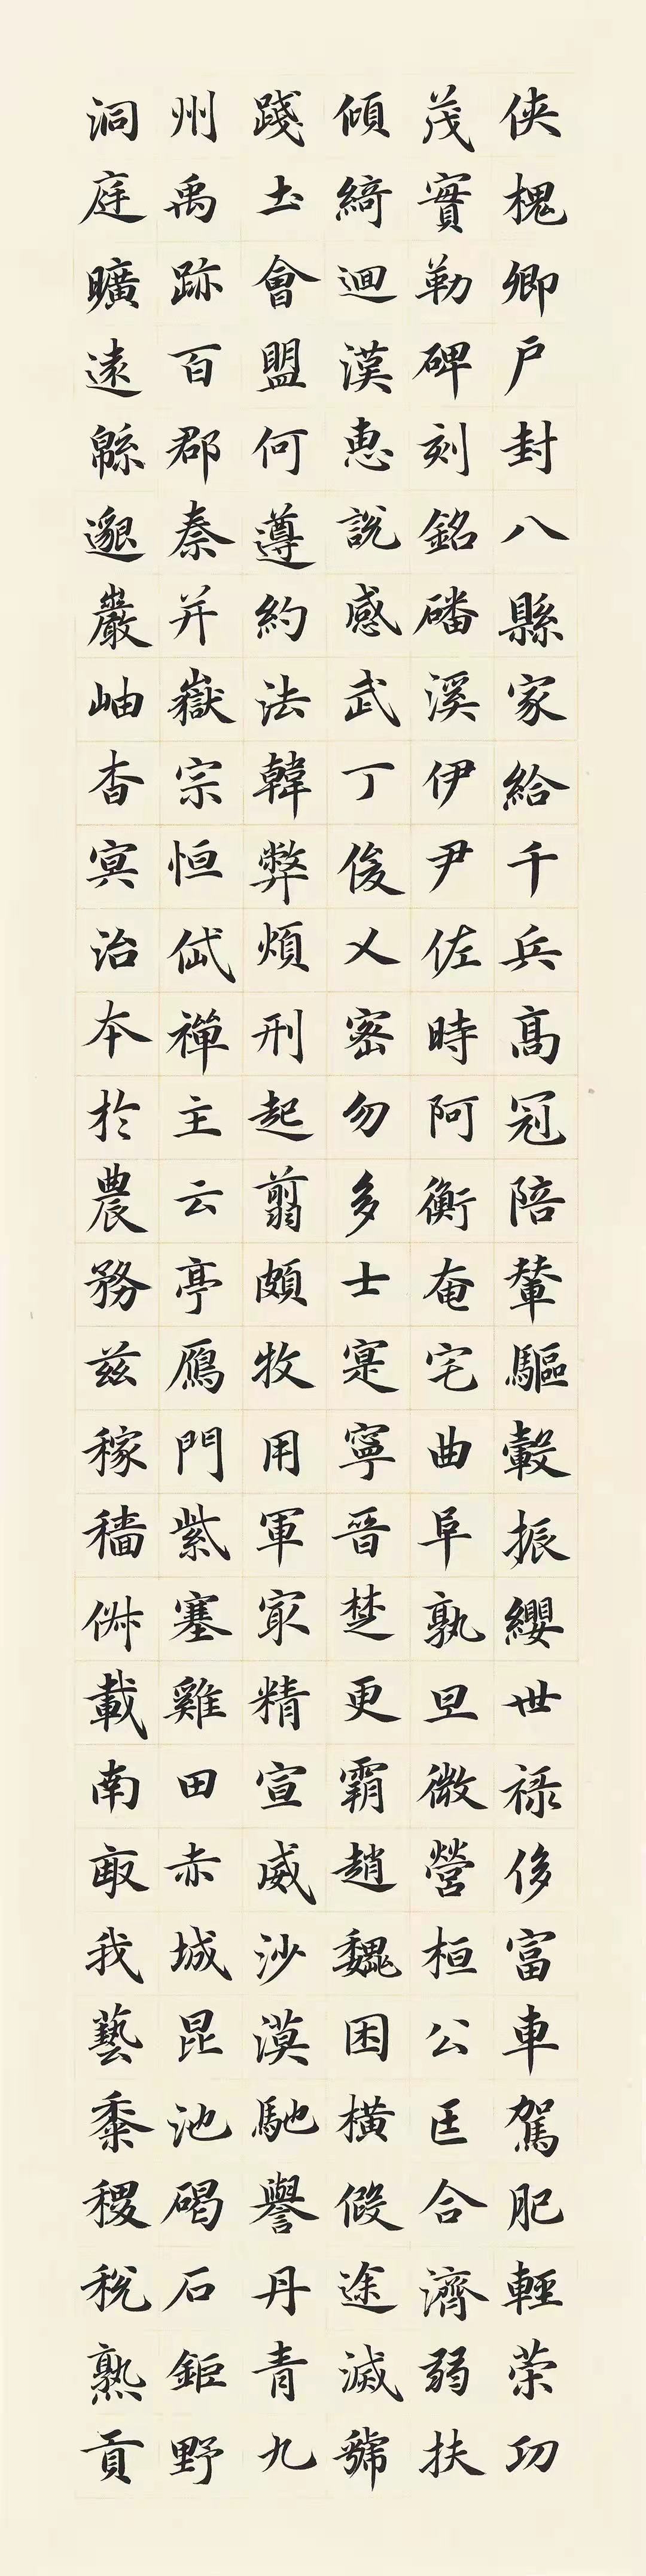 侠槐卿戶封八縣家給千兵高冠陪輦驅轂振纓世禄侈富車駕肥輕荣功
茂實勒碑刻銘磻溪伊尹佐時阿衡奄宅曲阜孰旦微營桓公匡合濟弱扶
傾綺迴漢惠說感武丁俊乂密勿多士寔寧晉楚更霸趙魏困橫假途滅虢
踐土會盟何遵約法韓弊煩刑起翦頗牧用軍冣精宣威沙漠馳譽丹青九
州禹跡百郡秦并嶽宗恒岱禪主云亭鴈門紫塞雞田赤城昆池碣石鉅野
洞庭曠遠緜邈巖岫杳冥治本於農務茲稼穡俶載南畝我藝黍稷稅熟貢